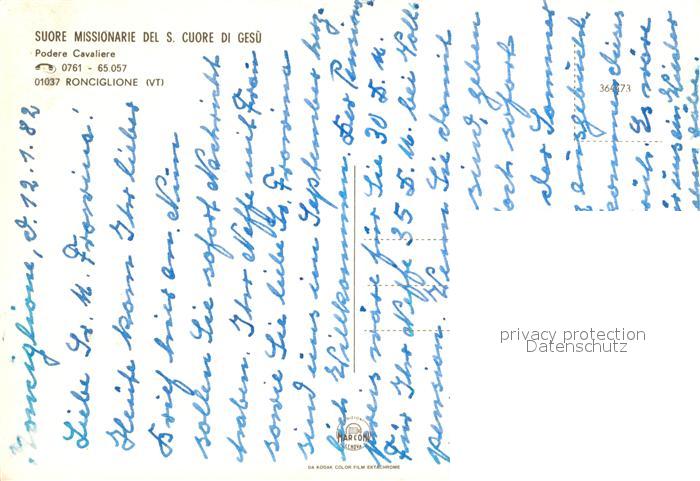 SUORE MISSIONARIE DEL S. CUORE DI GESÙ
Podere Cavaliere
0761 - 65.057
01037 RONCIGLIONE (VT)
364/73
Ronciglione, d. 12.1.82
Liebe Sr. M. Frowina!
Heute kam Ihr lieber
Brief hier an. Nun
sollen Sie sofort Nachricht
haben. Ihr Neffe mit Frau
sowie Sie liebe Sr. Frowina
sind uns im September herz-
lich Willkommen. Der Pension
preis wäre für Sie 30 D.M.
für Ihr Neffe 35 D.M. bei Voll
pension. Wenn Sie damit
sind, geben
och sofort
der Sommer
ausgebucht
Es wäre
MARCONI
GENOVA
DA KODAK COLOR FILM EKTACHROME
privacy protection
Datenschutz